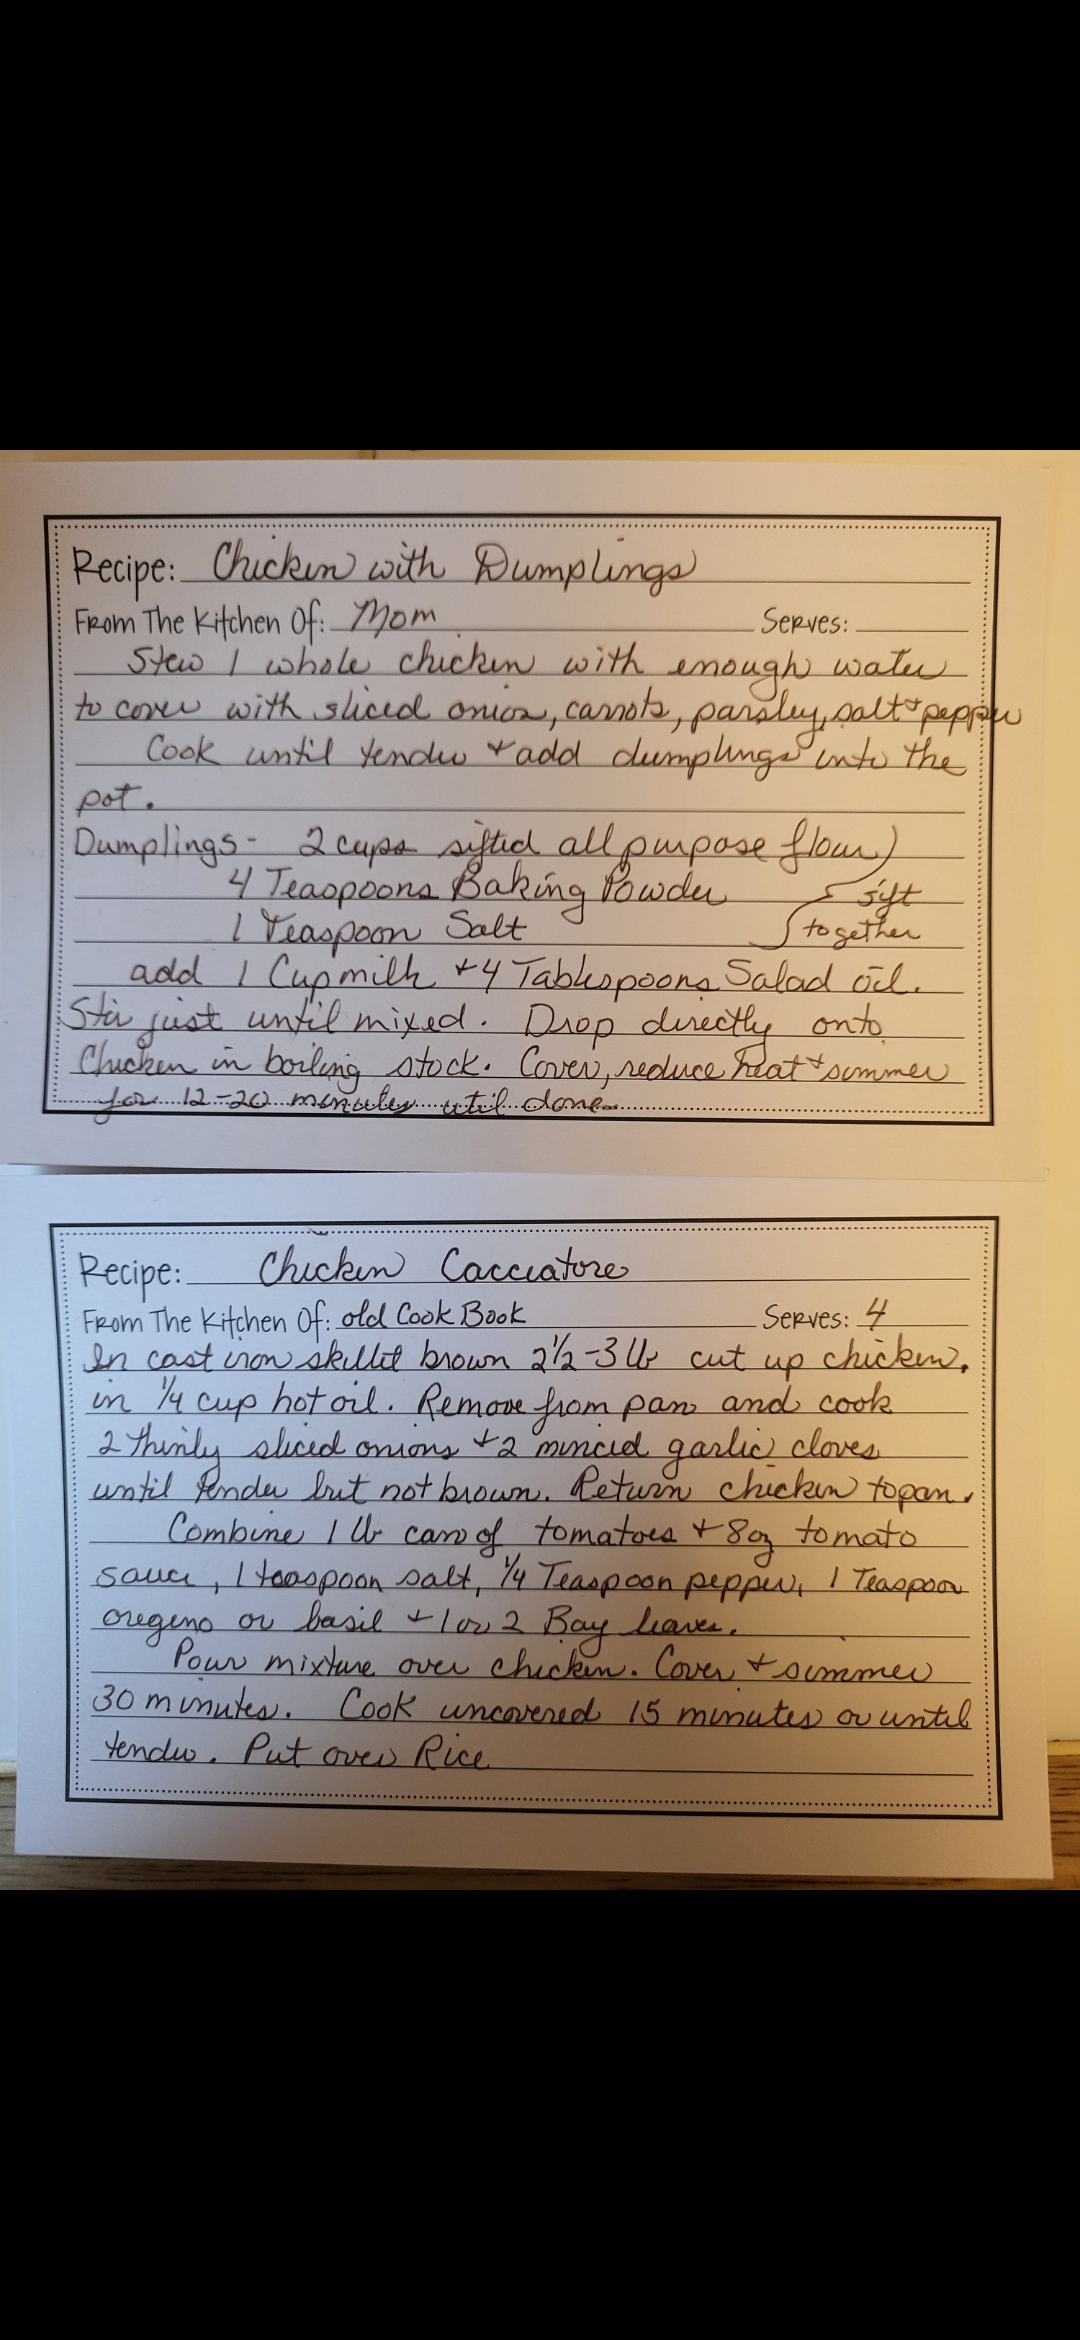 Recipe: Chicken with Dumplings
From The Kitchen Of: Mom Serves:
Stew 1 whole chicken with enough water
to cover with sliced onion, carrots, parsley, salt + pepper
Cook until tender + add dumplings into the
pot.
Dumplings - 2 cups sifted all purpose flour
4 Teaspoons Baking Powder sift
1 Teaspoon Salt together
add 1 Cup milk + 4 Tablespoons Salad oil.
Stir just until mixed. Drop directly onto
Chicken in boiling stock. Cover, reduce heat + simmer
for 12-20 minutes util done
Recipe: Chicken Cacciatore
From The Kitchen Of: old Cook Book Serves: 4
In cast iron skillet brown 2 1/2 - 3 lb cut up chicken,
in 1/4 cup hot oil. Remove from pan and cook
2 thinly sliced onions + 2 minced garlic cloves
until tender but not brown. Return chicken to pan.
Combine 1 lb can of tomatoes + 8 oz tomato
sauce, 1 teaspoon salt, 1/4 Teaspoon pepper, 1 Teaspoon
oregeno or basil + 1 or 2 Bay leaves.
Pour mixture over chicken. Cover + simmer
30 minutes. Cook uncovered 15 minutes or until
tender. Put over Rice